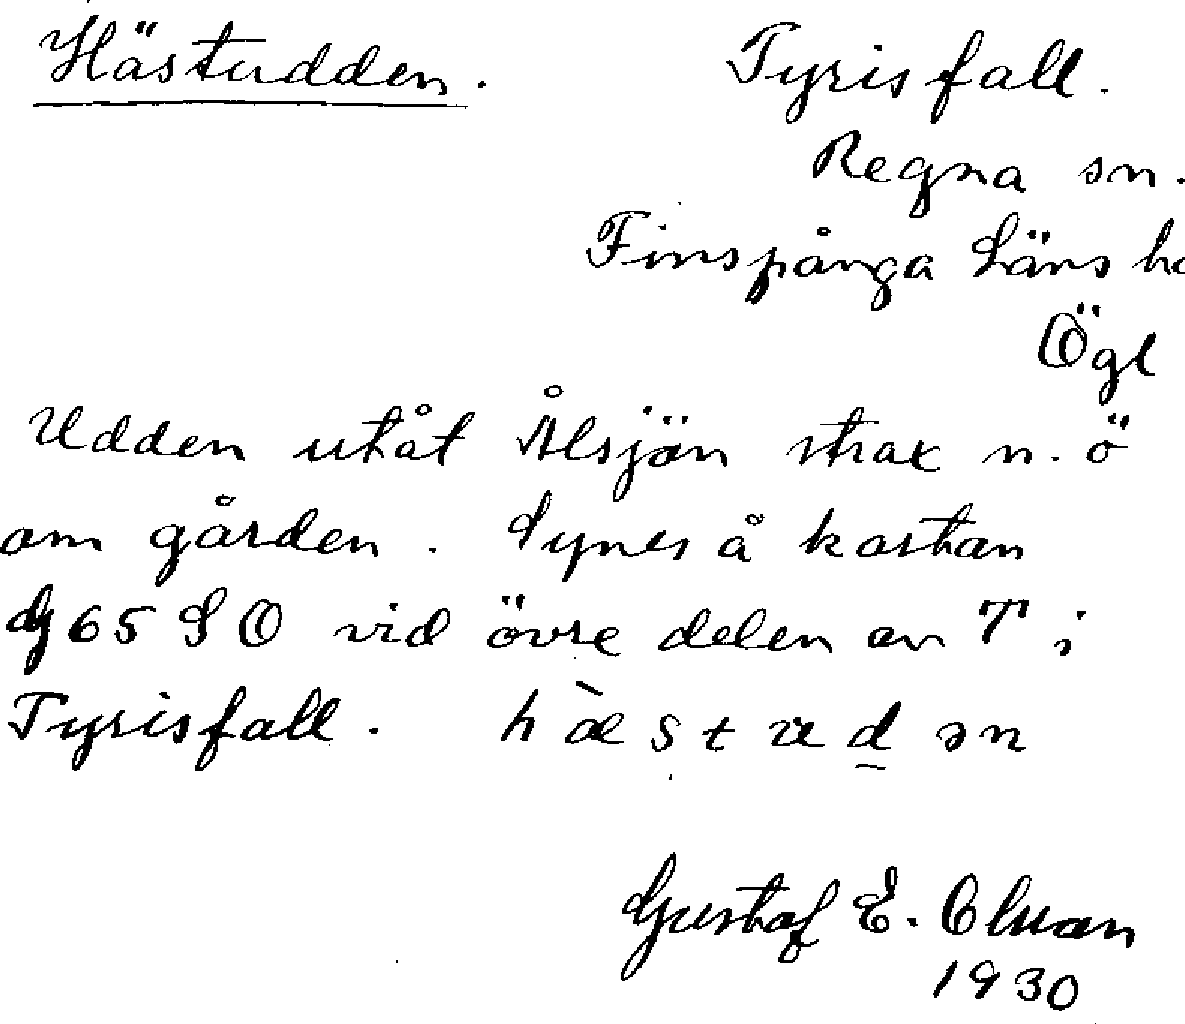 Hästudden. Tyrisfall.
Regna sn.
Finspånga Läns ho
Ögl
Udden utåt Ålsjön strax n.ö
om gården. Synes å kartan
65 SO vid övre delen av T i
Tyrisfall. hæ̀studən
Gustaf E.
1930